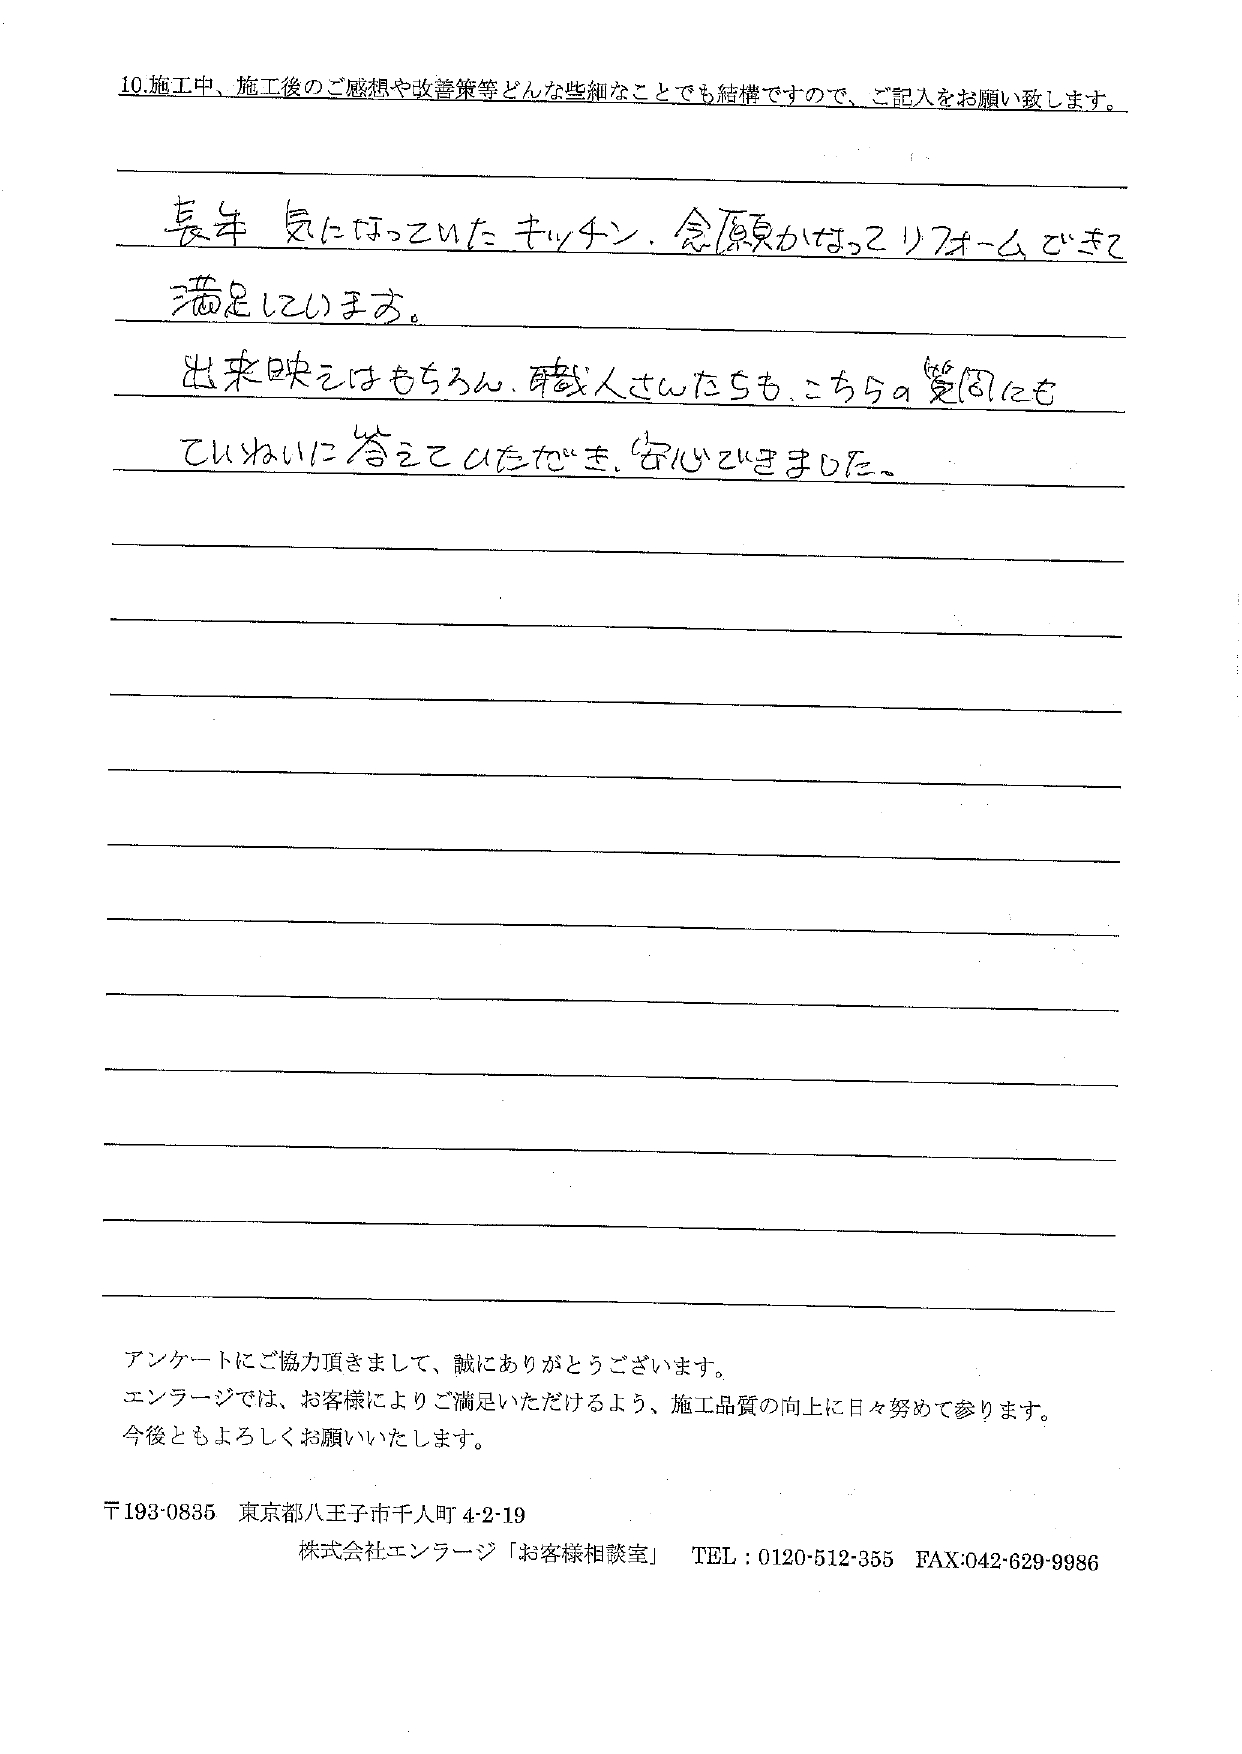 10.施工中、施工後のご感想や改善策等どんな些細なことでも結構ですので、ご記入をお願い致します。
長年 気になっていたキッチン、念願かなってリフォームできて
満足しています。
出来映えはもちろん、職人さんたちも、こちらの質問にも
ていねいに答えていただき、安心できました。
アンケートにご協力頂きまして、誠にありがとうございます。
エンラージでは、お客様によりご満足いただけるよう、施工品質の向上に日々努めて参ります。
今後ともよろしくお願いいたします。
〒193-0835 東京都八王子市千人町 4-2-19
株式会社エンラージ「お客様相談室」 TEL：0120-512-355 FAX:042-629-9986